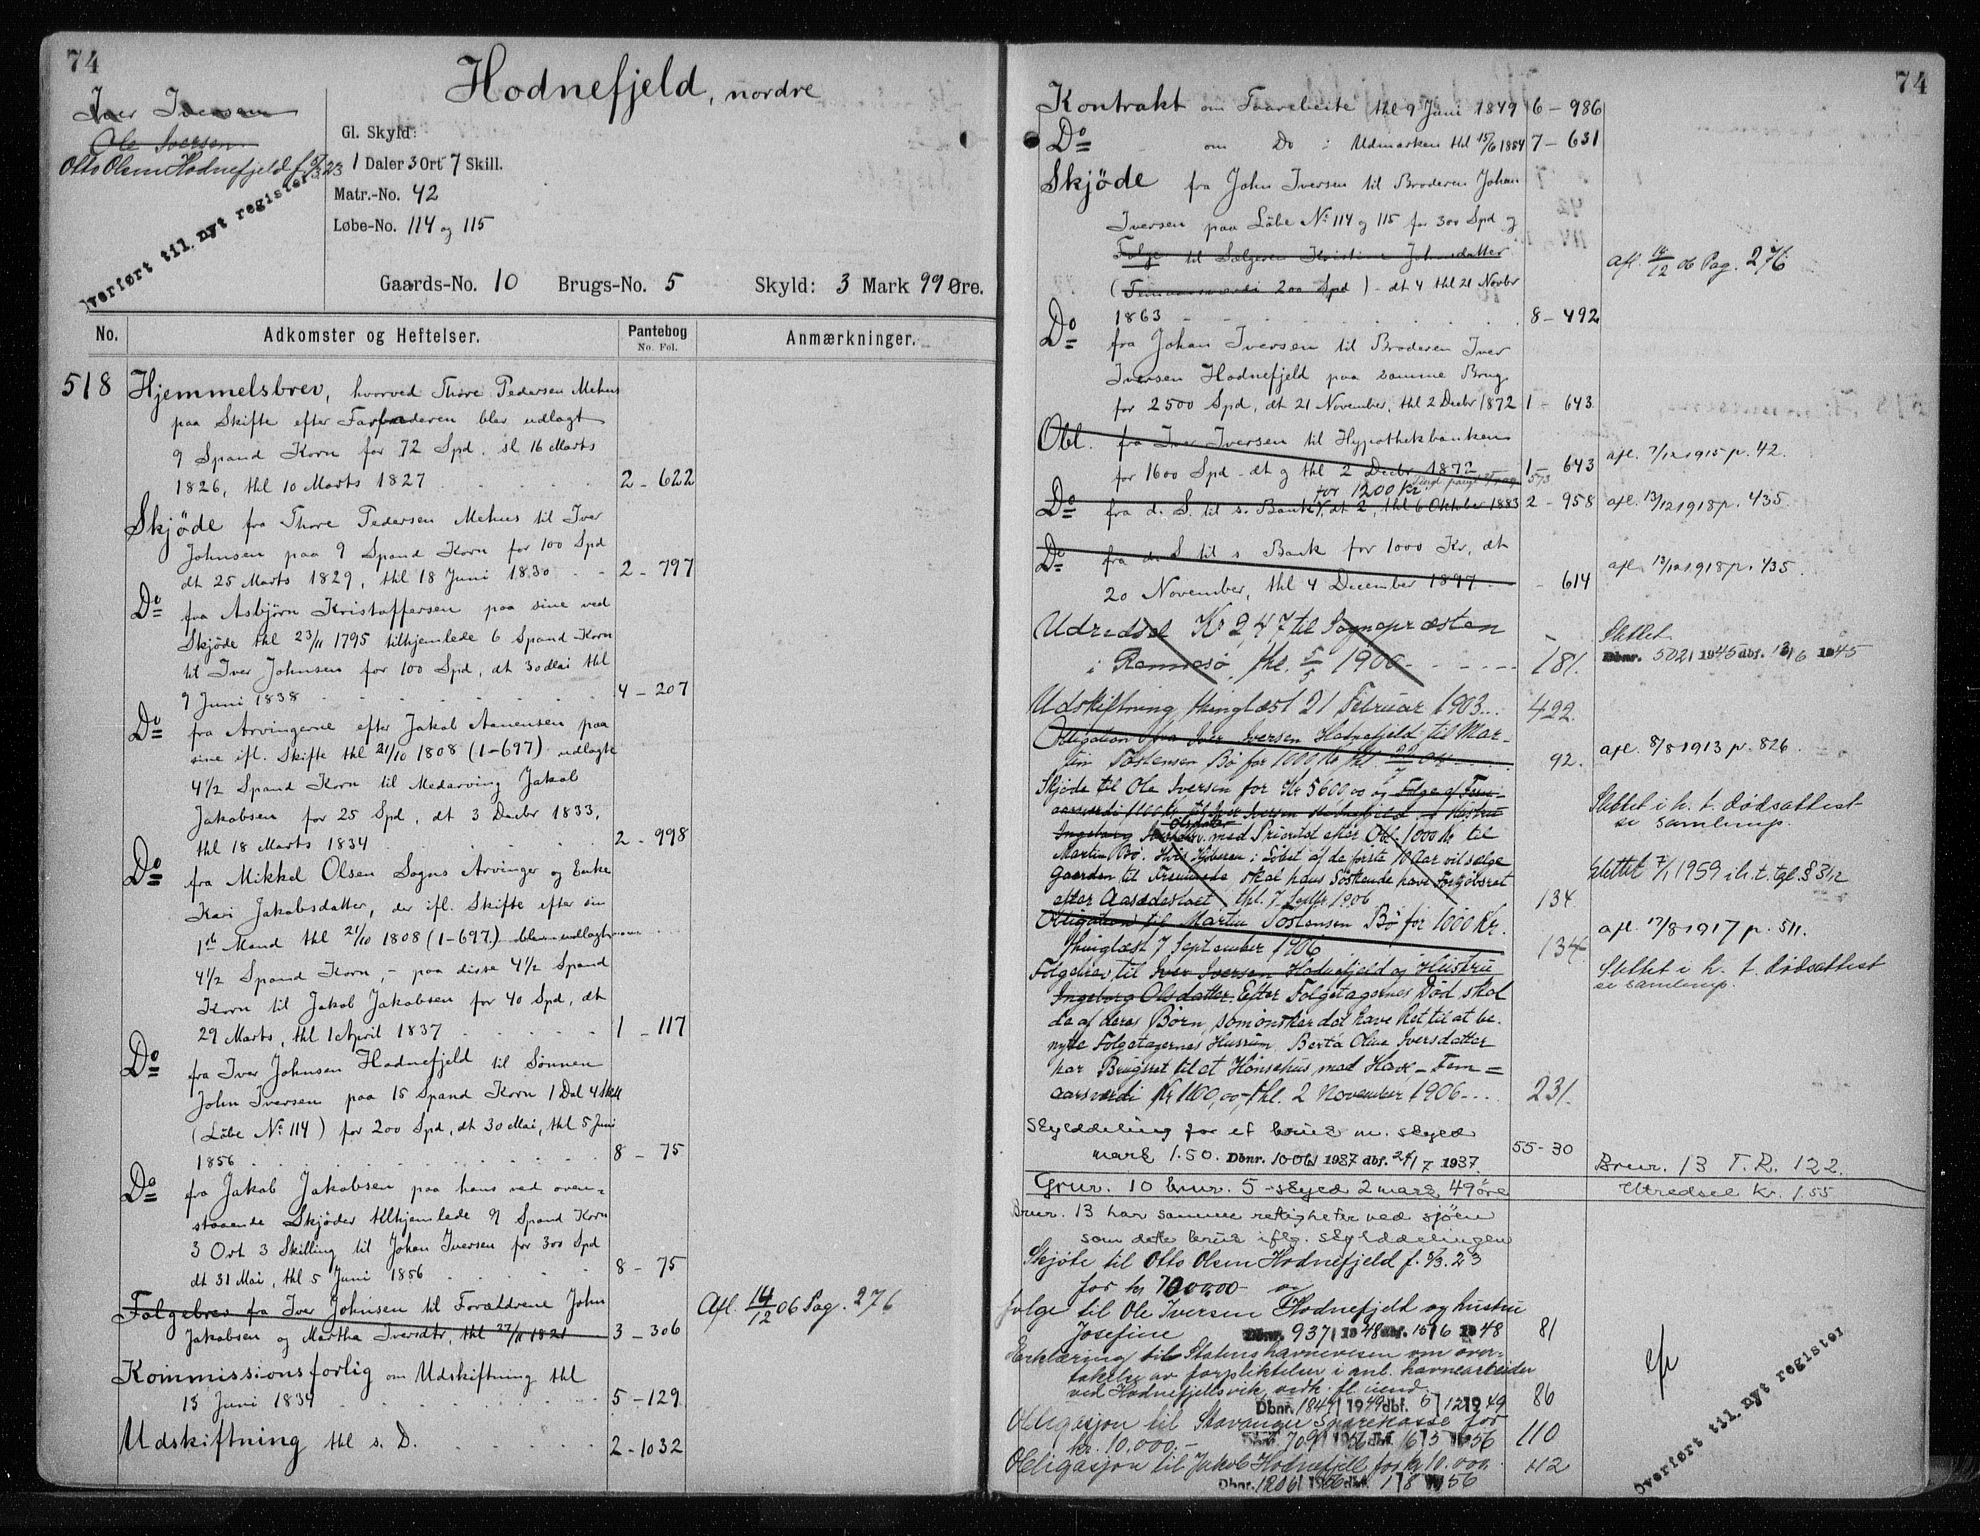 74
Hodnefjeld, nordre
Iver Iversen
Ole Iversen
Otto Olsen Hodnefjeld f. 3/3.23
Overført til nyt register
Gl. Skyld:
1 Daler 3 Ort 7 Skill.
Matr.-No. 42
Løbe-No. 114 og 115
Gaards-No. 10 Brugs-No. 5 Skyld: 3 Mark 99 Øre.
No. Adkomster og Heftelser. Pantebog No. Fol. Anmærkninger.
518 Hjemmelsbrev, hvorved Thore Pedersen Mehus
paa Skifte efter Farbroderen blev udlagt
9 Spand Korn for 72 Spd. sl 16 Marts
1826, thl 10 Marts 1827 2 - 622
Skjøde fra Thore Pedersen Mehus til Iver
Johnsen paa 9 Spand Korn for 100 Spd
dt 25 Marts 1829, thl 18 Juni 1830 2 - 797
Do fra Asbjørn Kristoffersen paa sine ved
Skjøde thl 23/11 1795 tilhjemlede 6 Spand Korn
til Iver Johnsen for 100 Spd, dt 30 Mai thl
9 Juni 1838 4 - 207
Do fra Arvingerne efter Jakob Aanensen paa
sine ifl. Skifte thl 21/10 1808 (1-697) udlagte
4 1/2 Spand Korn til Medarving Jakob
Jakobsen for 25 Spd, dt 3 Decbr 1833,
thl 18 Marts 1834 2 - 998
Do fra Mikkel Olsen Sogns Arvinger og Enke
Kari Jakobsdatter, der ifl. Skifte efter sin
1ste Mand thl 21/10 1808 (1-697) blev udlagt
4 1/2 Spand Korn, - paa disse 4 1/2 Spand
Korn til Jakob Jakobsen for 40 Spd, dt
29 Marts, thl 1 April 1837 1 - 117
Do fra Iver Johnsen Hodnefjeld til Sønnen
John Iversen paa 15 Spand Korn 1 Dal 4 Skill
(Løbe No 114) for 200 Spd, dt 30 Mai, thl 5 Juni
1856 8 - 75
Do fra Jakob Jakobsen paa hans ved oven=
staaende Skjøder tilhjemlede 9 Spand Korn
3 Ort 3 Skilling til Johan Iversen for 300 Spd
dt 31 Mai, thl 5 Juni 1856 8 - 75
Følgebrev fra Iver Johnsen til Forældrene John
Jakobsen og Martha Iversdtr, thl 27/11 1821 3 - 306 Afl. 14/12 06 Pag. 276
Kommissionsforlig om Udskiftning thl
13 Juni 1834 5 - 129
Udskiftning thl s. D. 2 - 1032
74
Kontrakt om Torvebeite thl 9 Juni 1849 6 - 986
Do om Do i Udmarken thl 15/6 1854 7 - 631
Skjøde fra John Iversen til Broderen Johan
Iversen paa Løbe No 114 og 115 for 300 Spd og
Følge til Sælgeren Kristine Johnsdatter
(Femaarsværdi 200 Spd) - dt 4 thl 21 Novbr afl. 14/12 06 Pag. 276
1863 8 - 492
Do fra Johan Iversen til Broderen Iver
Iversen Hodnefjeld paa samme Brug
for 2500 Spd, dt 21 November, thl 2 Decbr 1872 1 - 643
Obl. fra Iver Iversen til Hypothekbanken
for 1600 Spd - dt og thl 2 Decbr 1872 1 - 643 afl. 7/12 1915 p. 42.
for 1200 Kr. 573
Do fra d. S. til s. Bank, dt 2, thl 6 Oktober 1883 2 - 958 afl. 13/12 1918 p. 435
Do fra d. S til s Bank for 1000 Kr, dt
20 November, thl 4 December 1897 - 614 afl. 13/12 1918 p. 435.
Udredsel Kr 2,47 til Sognepræsten
i Rennesø, thl. 5/5 1900 181. Slettet Dbnr. 502 1945 dbf. 13/6 1945
Udskiftning thinglæst 21 Februar 1903 422
Obligation fra Iver Iversen Hodnefjeld til Mar-
tin Tostensen Bø for 1000 Kr thl 92. afl. 8/8 1913 p. 826.
Skjøde til Ole Iversen for Kr 5600,00 og Følge af Fem-
aarsværdi 1100 Kr. til Iver Iversen Hodnefjeld og Hustru
Ingeborg Olsdatter med Prioritet efter Obl. 1000 Kr til
Martin Bø. Hvis Kjøberen i Løbet af de første 10 Aar vil sælge
Gaarden til Fremmede skal hans Søskende have Forkjøbsret
efter Aasædestaxt thl. 7 Septbr 1906 134
Slettet i h. t. dødsattest
se samlemp.
Slettet 7/1 1959 i h. t. tgl. § 31,2
Obligation til Martin Tostensen Bø for 1000 Kr.
Thinglæst 7 September 1906 134 afl. 17/8 1917 p. 511.
Følgebrev til Iver Iversen Hodnefjeld og Hustru
Ingeborg Olsdatter. Efter Følgetagernes Død skal
de af deres Børn, som ønsker det have Ret til at be-
nytte Følgetagernes Husrum. Berta Oline Iversdatter
har Brugsret til et Hønsehus med Have - Fem=
aarsværdi Kr 1100,00, thl. 2 November 1906 231.
Slettet i h. t. dødsattest
se samlemp.
Skylddeling for et bruk m. skyld
mark 1.50. Dbnr. 1006 1937 dbf. 24/7 1937. 55 - 30 Brnr. 13 T. R. 122.
Grnr. 10 brnr. 5 - skyld 2 mark 49 øre Utredsel kr. 1.55
Brnr. 13 har samme rettigheter ved sjøen
som dette bruk iflg. skylddelingen
Skjøte til Otto Olsen Hodnefjeld f. 3/3.23
for kr 7000,00 og
følge til Ole Iversen Hodnefjeld og hustru
Josefine Dbnr. 937 1948 dbf. 15/6 1948 81
Erklæring til Statens havnevesen om over-
takelse av forpliktelser i anl. havnearbeider
ved Hodnefjellsvik, vedk. fl. eiend.
Dbnr. 1847 1949 dbf. 6/12 1949 86
Obligasjon til Stavanger Sparekasse for
kr. 10.000.- Dbnr. 709 1956 dbf. 16/5 1956 110
Obligasjon til Jakob Hodnefjell for kr 10.000.
Dbnr. 1206 1956 dbf. 1/8 1956 42
Overført til nyt register